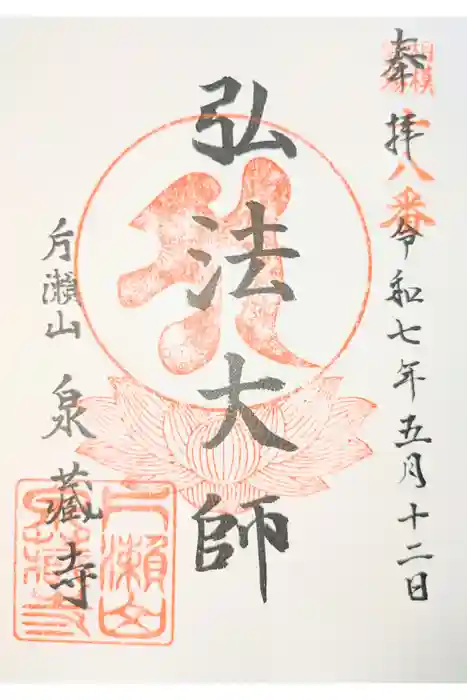 奉拝
十八番
令和七年五月十二日
弘法大師
片瀬山
泉蔵寺
片瀬山
泉蔵寺